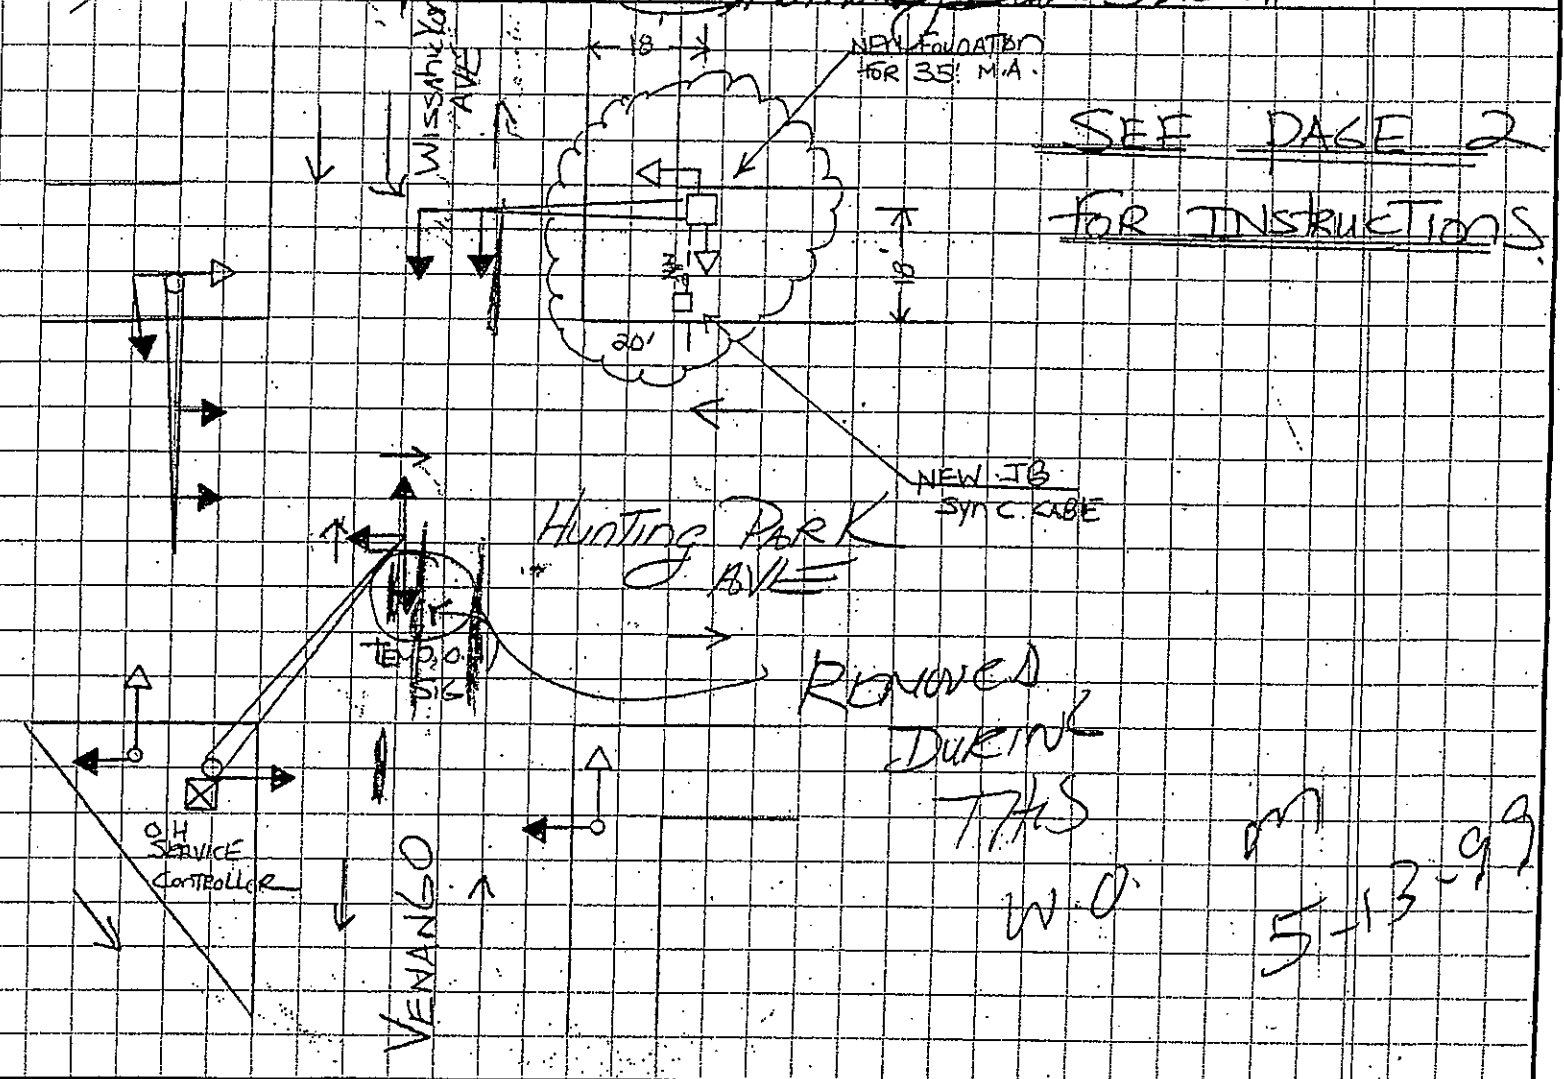 Wissahickon
AVE
18'
NEW FOUNDATION
FOR 35' M.A.
SEE PAGE 2
FOR INSTRUCTIONS.
18'
20'
NEW JB
SYNC. CABLE
HUNTING PARK
AVE
TEMP. O.H.
SIG
REMOVED
DURING
THIS
W.O.
5-13-99
O.H
SERVICE
CONTROLLER
VENANGO